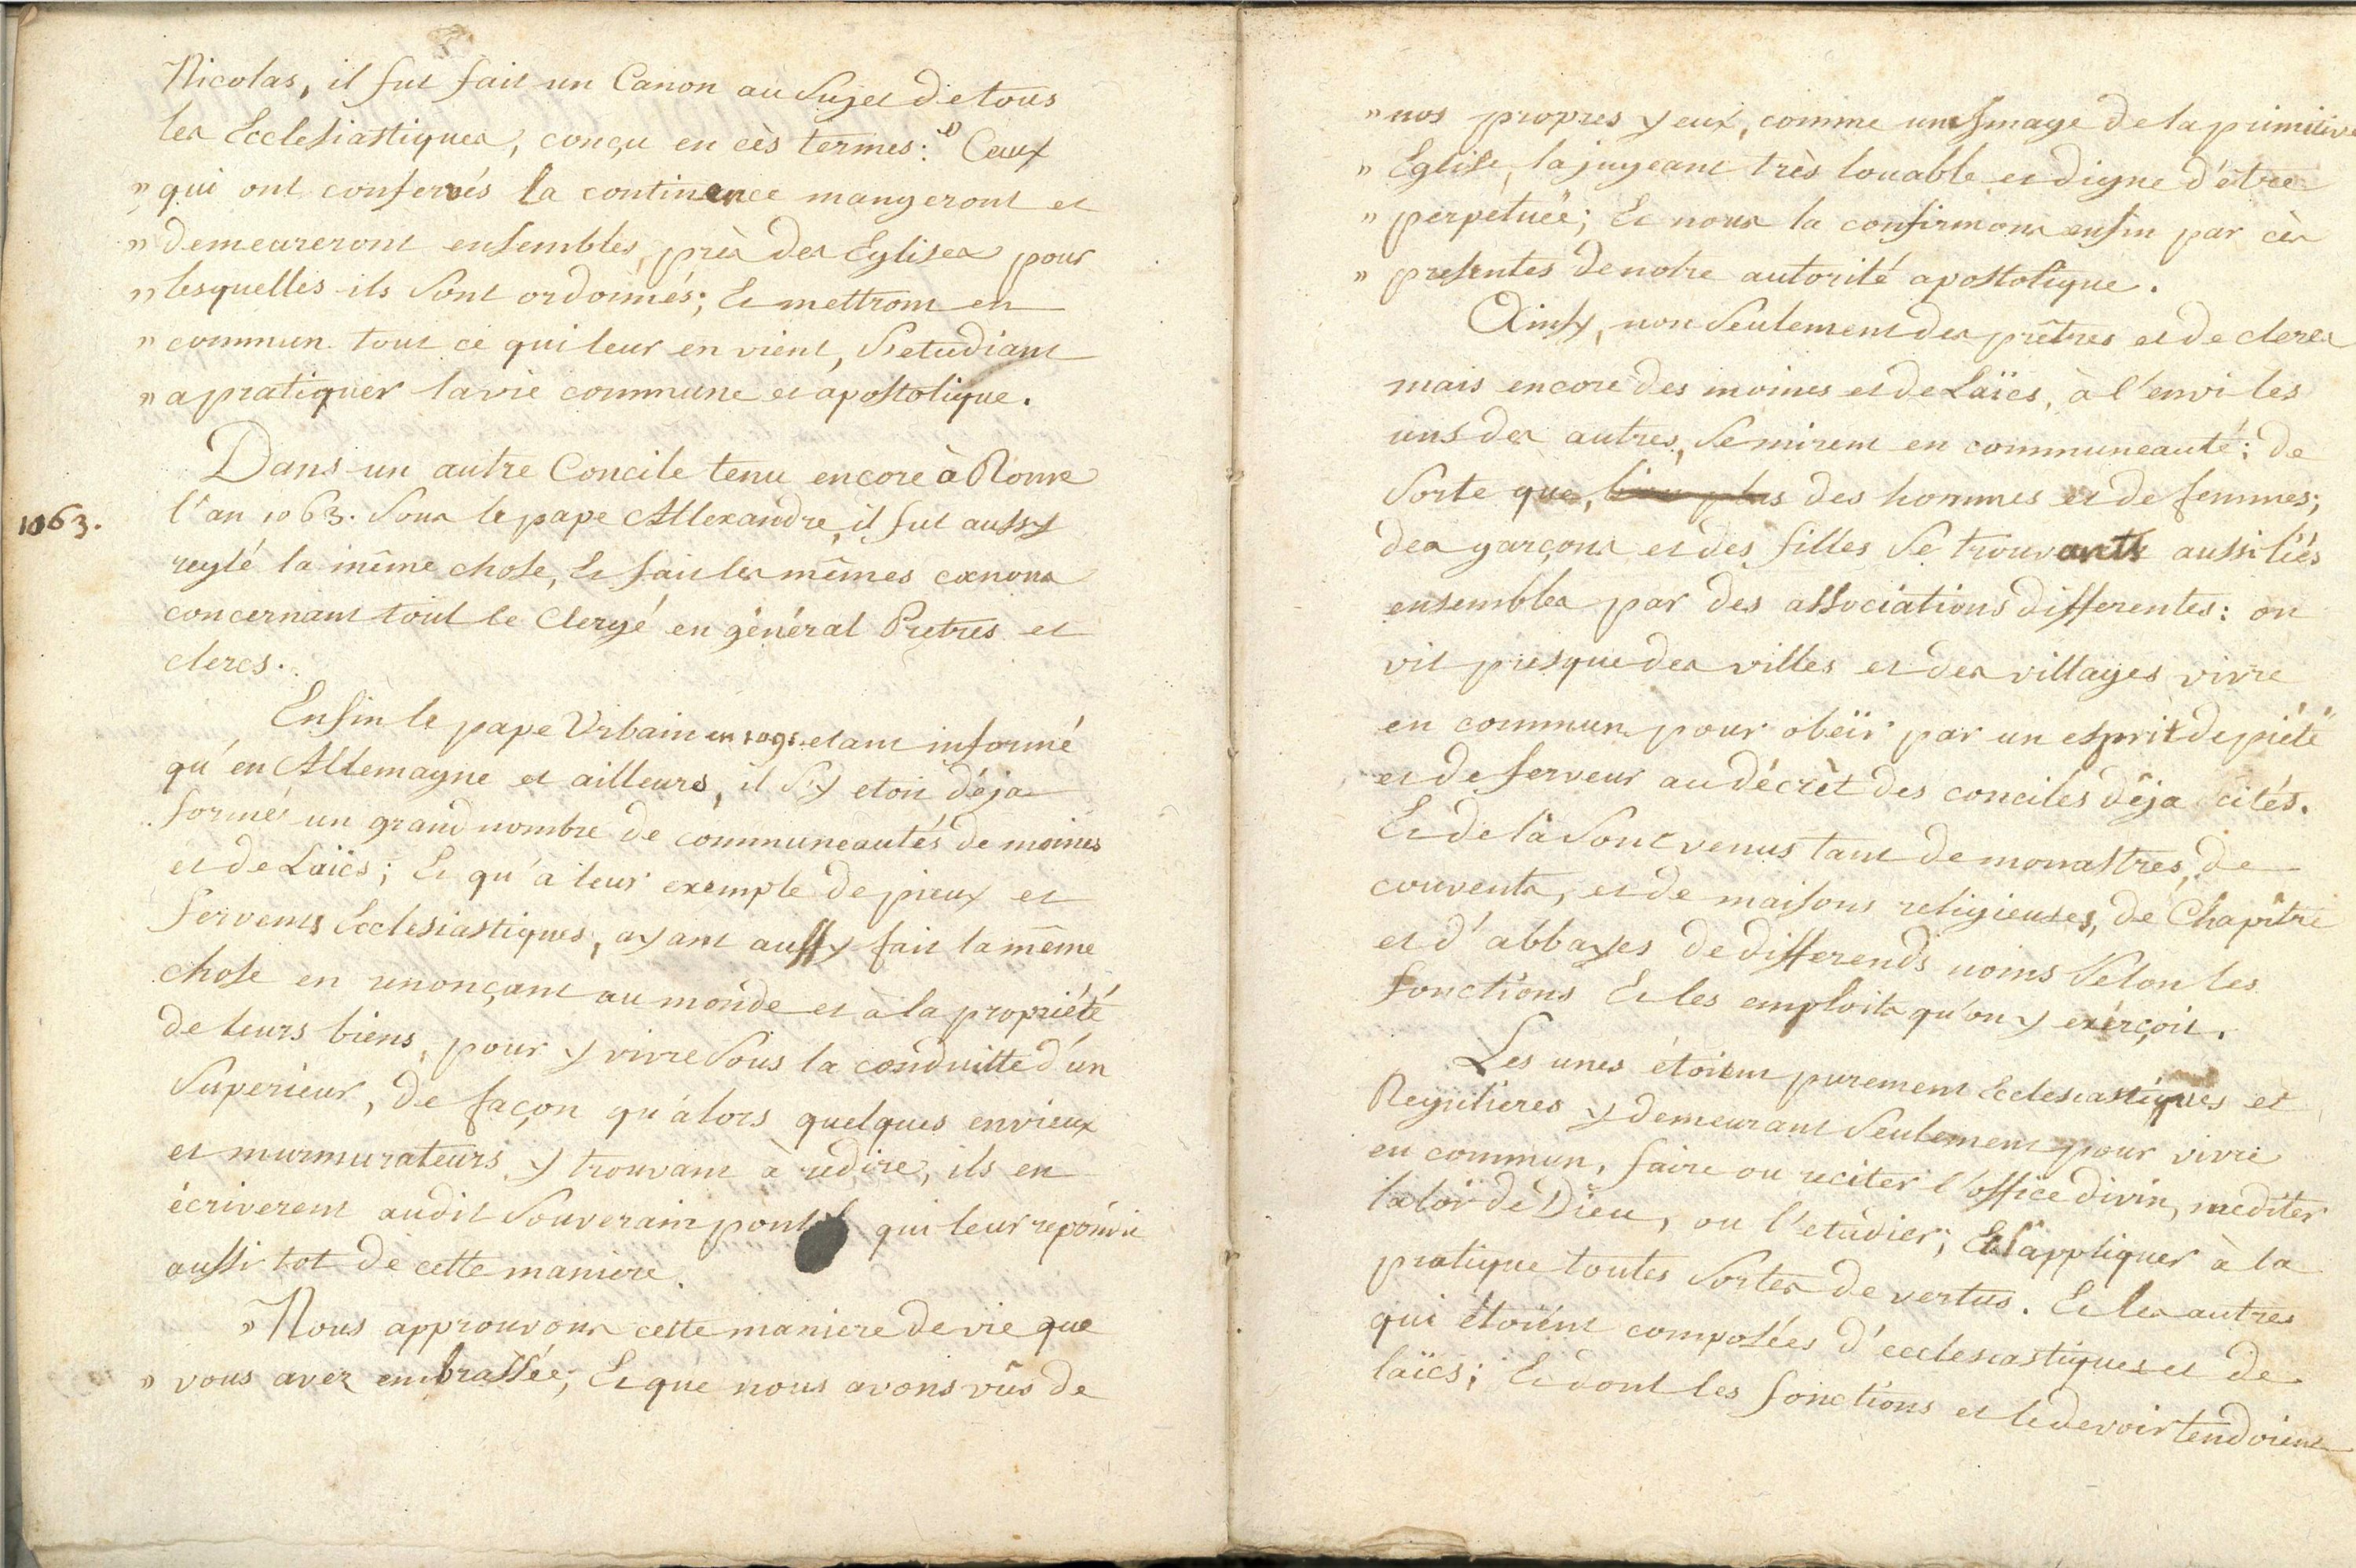 Nicolas, il fut fait un Canon au Sujet de tous
les Ecclesiastiques, conçu en cès termes: " Ceux
" qui ont conservés la continence mangeront et
" demeureront ensembles près des Eglises pour
" lesquelles ils Sont ordonnés; Et mettront en
" commun tout ce qui leur en vient, S'etudiant
" a pratiquer la vie commune et apostolique.
Dans un autre Concile tenu encore à Rome
1063.
l'an 1063. Sous le pape Allexandre, il fut aussy
reglé la même chose, Et fait les mêmes canons
concernant tout le Clergé en général Pretres et
clercs.
Enfin le pape Urbain en 1091. etant informé
qu'en Allemagne et ailleurs, il S'y etoit déja
formé un grand nombre de communeautés de moines
et de Laïcs; Et qu'à leur exemple de pieux et
fervents Ecclesiastiques, ayant aussy fait la même
chose en renonçant au monde et à la propriété
de leurs biens, pour y vivre Sous la conduitte d'un
Superieur, de façon qu'alors quelques envieux
et murmurateurs y trouvant à redire, ils en
écriverent audit Souverain qui leur repondit
aussi tot de cette maniere.
" Nous approuvons cette maniere de vie que
" vous avez embrassée; Et que nous avons vûs de
" nos propres yeux, comme une Image de la primitive
" Eglise, la jugeant très louable et digne d'être
" perpetuée; Et nous la confirmons enfin par cès
" presentes de notre autorité apostolique.
Ainsy, non Seulement des prêtres et de clercs
mais encore des moines et de Laïcs, à l'envi les
uns des autres, Se mirent en communeauté: de
Sorte que, bien plus des hommes et de femmes;
des garçons et des filles Se trouvants aussi liés
ensembles par des associations differentes: on
vit presque des villes et des villages vivre
en commun pour obéïr par un esprit de piété
et de ferveur au décrèt des conciles déja cités.
Et de là Sont venus tant de monastres, de
couvents, et de maisons religieuses, de Chapître
et d'abbayes de differends noms Selon les
fonctions Et les emploits qu'on y exérçoit.
Les unes étoient purement Ecclesiastiques et
Regulieres y demeurant Seulement pour vivre
en commun, faire ou reciter l'office divin, mediter
la loi de Dieu, ou l'etudier; Et S'appliquer à la
pratique toutes Sortes de vertus. Et les autres
qui étoient composées d'ecclesiastiques et de
laïcs; Et dont les fonctions et le devoir tendoient